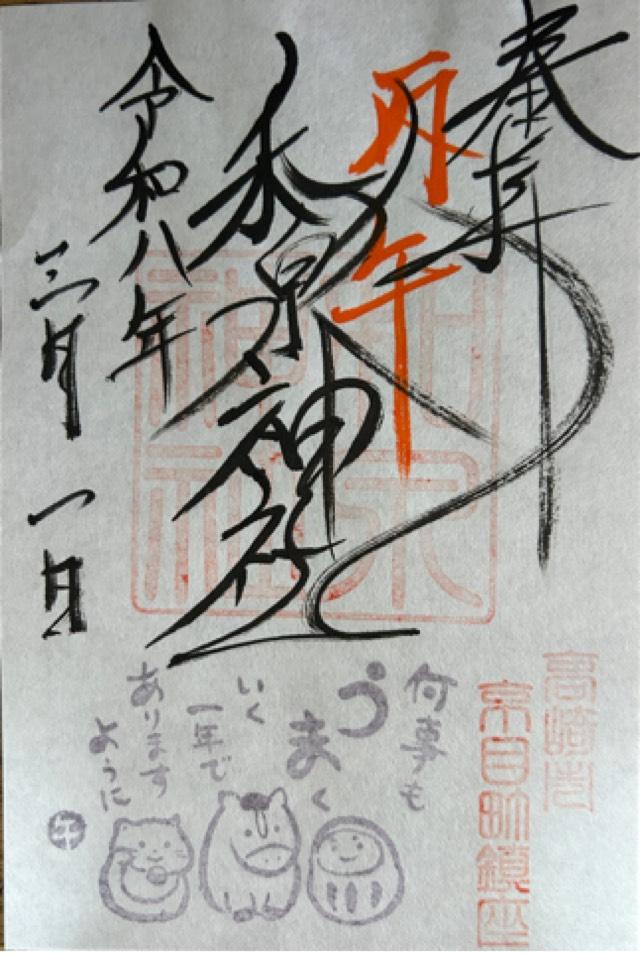 奉拝
丙午
和泉神社
令和八年
三月 一日
高崎市
京目町鎮座
何事も
うまく
いく
一年で
あります
ように